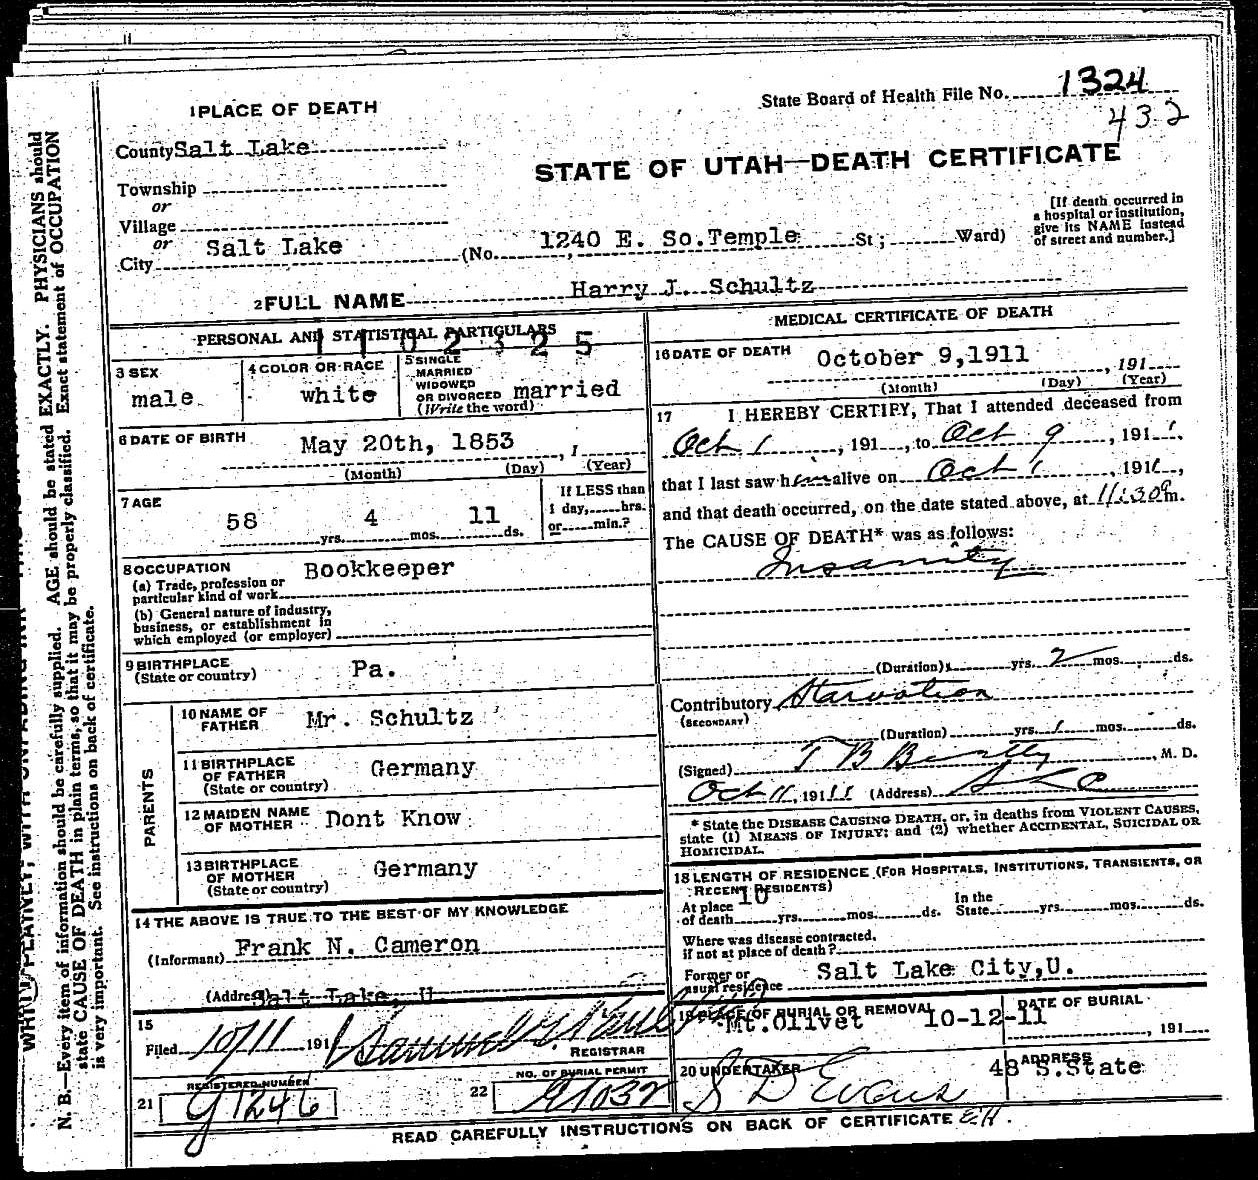 1324
State Board of Health File No.
432
1 PLACE OF DEATH
County Salt Lake
STATE OF UTAH—DEATH CERTIFICATE
Township
or
Village
or
City Salt Lake (No. 1240 E. So.Temple St; Ward)
[If death occurred in
a hospital or institution,
give its NAME instead
of street and number.]
2 FULL NAME Harry J. Schultz
PERSONAL AND STATISTICAL PARTICULARS
1102325
3 SEX
male
4 COLOR OR RACE
white
5 SINGLE
MARRIED
WIDOWED
OR DIVORCED married
(Write the word)
6 DATE OF BIRTH
May 20th, 1853, 1
(Month) (Day) (Year)
7 AGE
58 yrs. 4 mos. 11 ds.
If LESS than
1 day, hrs.
or min.?
8 OCCUPATION Bookkeeper
(a) Trade, profession or
particular kind of work
(b) General nature of industry,
business, or establishment in
which employed (or employer)
9 BIRTHPLACE
(State or country) Pa.
PARENTS
10 NAME OF
FATHER Mr. Schultz
11 BIRTHPLACE
OF FATHER
(State or country) Germany
12 MAIDEN NAME
OF MOTHER Dont Know
13 BIRTHPLACE
OF MOTHER
(State or country) Germany
14 THE ABOVE IS TRUE TO THE BEST OF MY KNOWLEDGE
(Informant) Frank N. Cameron
(Address) Salt Lake, U.
15
Filed 10/11 191
REGISTRAR
REGISTERED NUMBER
21 G1246
NO. OF BURIAL PERMIT
22 G1032
MEDICAL CERTIFICATE OF DEATH
16 DATE OF DEATH October 9,1911, 191
(Month) (Day) (Year)
17 I HEREBY CERTIFY, That I attended deceased from
Oct 1, 191, to Oct 9, 1911,
that I last saw him alive on Oct 1, 1911,
and that death occurred, on the date stated above, at 11:30 m.
The CAUSE OF DEATH* was as follows:
Insanity
(Duration) yrs. 2 mos. ds.
Contributory Starvation
(SECONDARY)
(Duration) yrs. 1 mos. ds.
(Signed) T B Beatty, M. D.
Oct 11, 1911 (Address) S L C
* State the DISEASE CAUSING DEATH, or, in deaths from VIOLENT CAUSES,
state (1) MEANS OF INJURY; and (2) whether ACCIDENTAL, SUICIDAL OR
HOMICIDAL.
18 LENGTH OF RESIDENCE (FOR HOSPITALS, INSTITUTIONS, TRANSIENTS, OR
RECENT RESIDENTS)
At place
of death 10 yrs. mos. ds.
In the
State yrs. mos. ds.
Where was disease contracted,
if not at place of death?
Former or
usual residence Salt Lake City,U.
19 PLACE OF BURIAL OR REMOVAL
Mt.Olivet
DATE OF BURIAL
10-12-11, 191
20 UNDERTAKER
S D Evans
ADDRESS
48 S.State
READ CAREFULLY INSTRUCTIONS ON BACK OF CERTIFICATE E.H.
N. B.—Every item of information should be carefully supplied. AGE should be stated EXACTLY. PHYSICIANS should
state CAUSE OF DEATH in plain terms, so that it may be properly classified. Exact statement of OCCUPATION
is very important. See instructions on back of certificate.